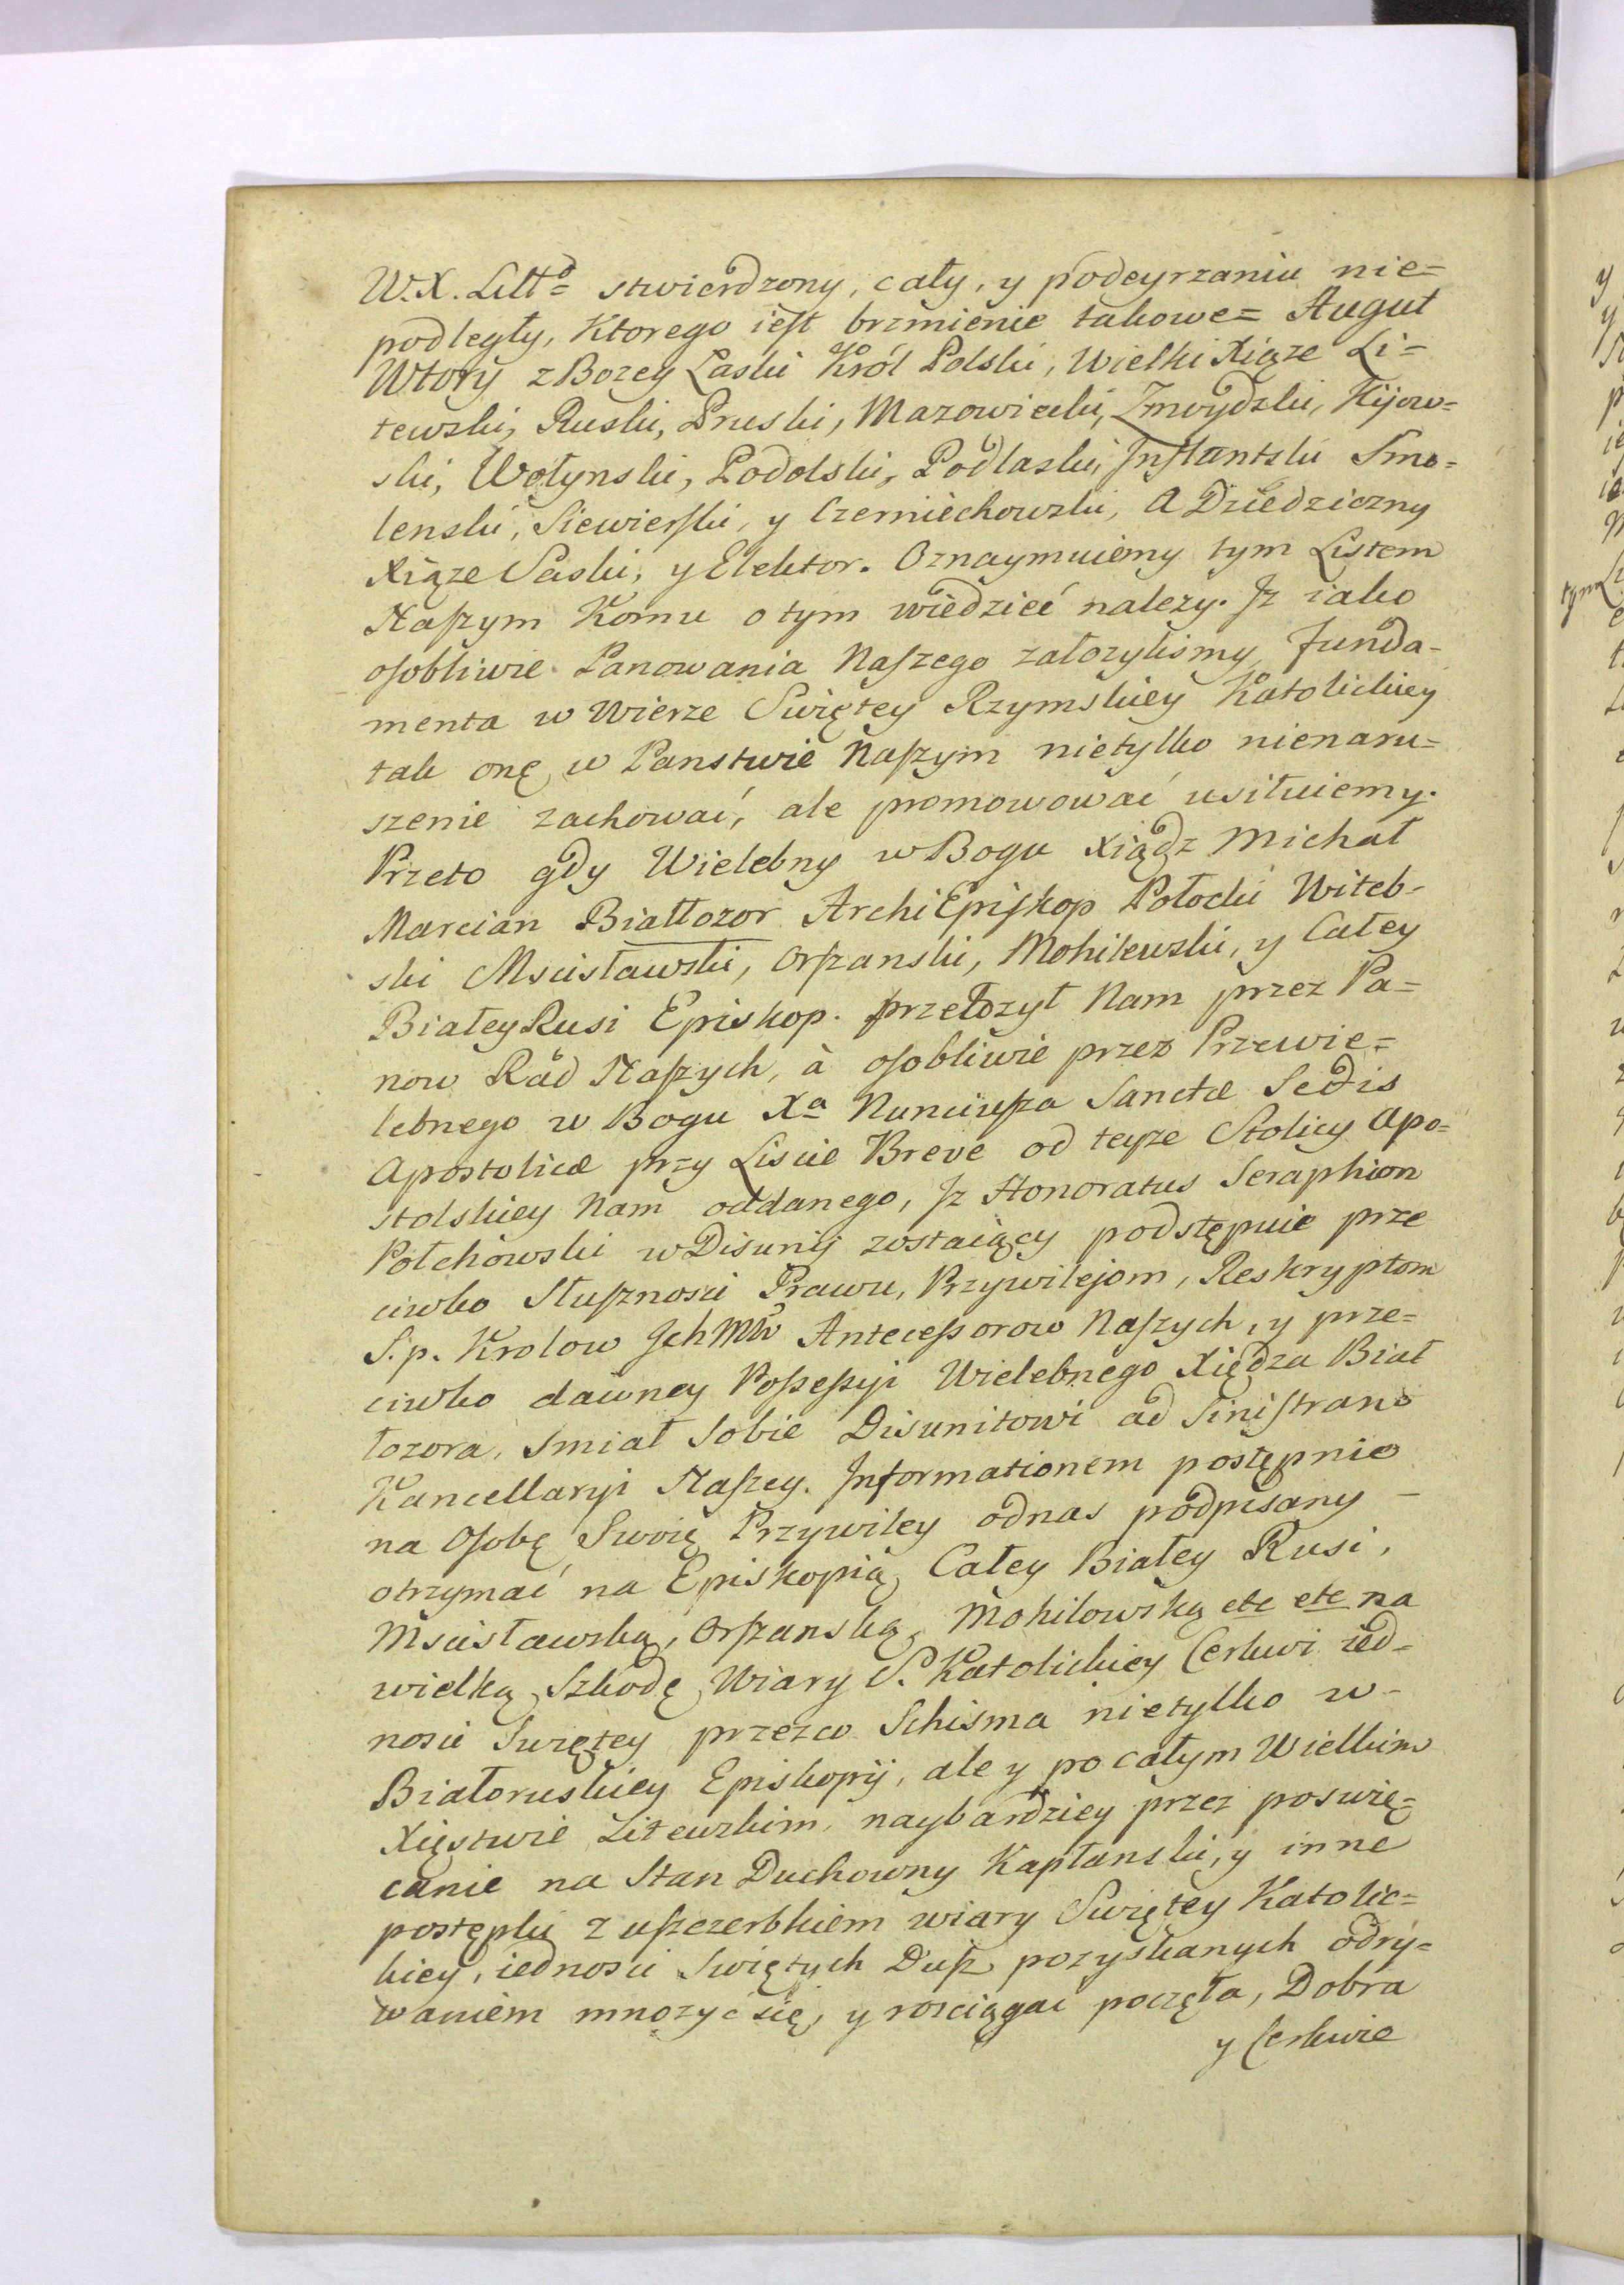 W.X. Littº= stwierdzony, cały, y podeyrzaniu nie=
podległy, Ktorego iest brzmienie takowe= August
Wtory z Bozey Łaski Król Polski, Wielki Xiąze Li=
tewski, Ruski, Pruski, Mazowiecki, Zmuydzki, Kijow=
ski, Wołynski, Podolski, Podlaski, Inflantski Smo=
lenski, Siewierski, y Czerniechowski, A Dziedziczny
Xiąze Saski, y Elektor. Oznaymuiemy tym Listem
Naszym Komu o tym wiedzieć nalezy. Iz iako
osobliwie Panowania Naszego załozylismy funda-
menta w Wierze Swiętey Rzymskiey Katolickiey
tak onę w Panstwie Naszym nietylko nienaru=
szenie zachować, ale promowować usiłuiemy.
Przeto gdy Wielebny w Bogu Xiądz Michał
Marcian Białłozor ArchiEpiskop Połocki Witeb-
ski Mscisławski, Orszanski, Mohilewski, y Całey
Białey Rusi Episkop. przełozył Nam przez Pa=
now Rad Naszych, à osobliwie przez Przewie=
lebnego w Bogu Xª Nunciusza Sanctæ Sedis
Apostolicæ przy Liscie Breve od teyze Stolicy Apo=
stolskiey Nam oddanego, Iz Honoratus Seraphion
Połchowski w Disunij zostaiący podstępnie prze
ciwko Słuszności Prawu, Przywilejom, Reskryptom
S.p. Krolow Jchmw Antecessorow Naszych, y prze=
ciwko dawney Possessyi Wielebnego Xiędza Biał
łozora, Smiał Sobie Disunitowi ad Sinistram
Kancellaryi Naszey. Informationem postępnie
na Osobę Swoię Przywiley odnas podpisany -
otrzymać na Episkopią Całey Białey Rusi,
Mscisławską, Orszanską, Mohilowską etc etc na
wielką Szkodę Wiary S. Katolickiey Cerkwi ied-
nosci Swiętey przezco Schisma nietylko w-
Białoruskiey Episkopij, ale y po całym Wielkim
Xięstwie Litewskim, naybardziey przez poswię=
canie na Stan Duchowny Kapłanski, y inne
postępki z uszczerbkiem wiary Swiętey Katolic=
kiey, iednosci Swiętych Dusz pozyskanych odry=
waniem mnozyć się, y rosciągać poczęła, Dobra
y Cerkwie